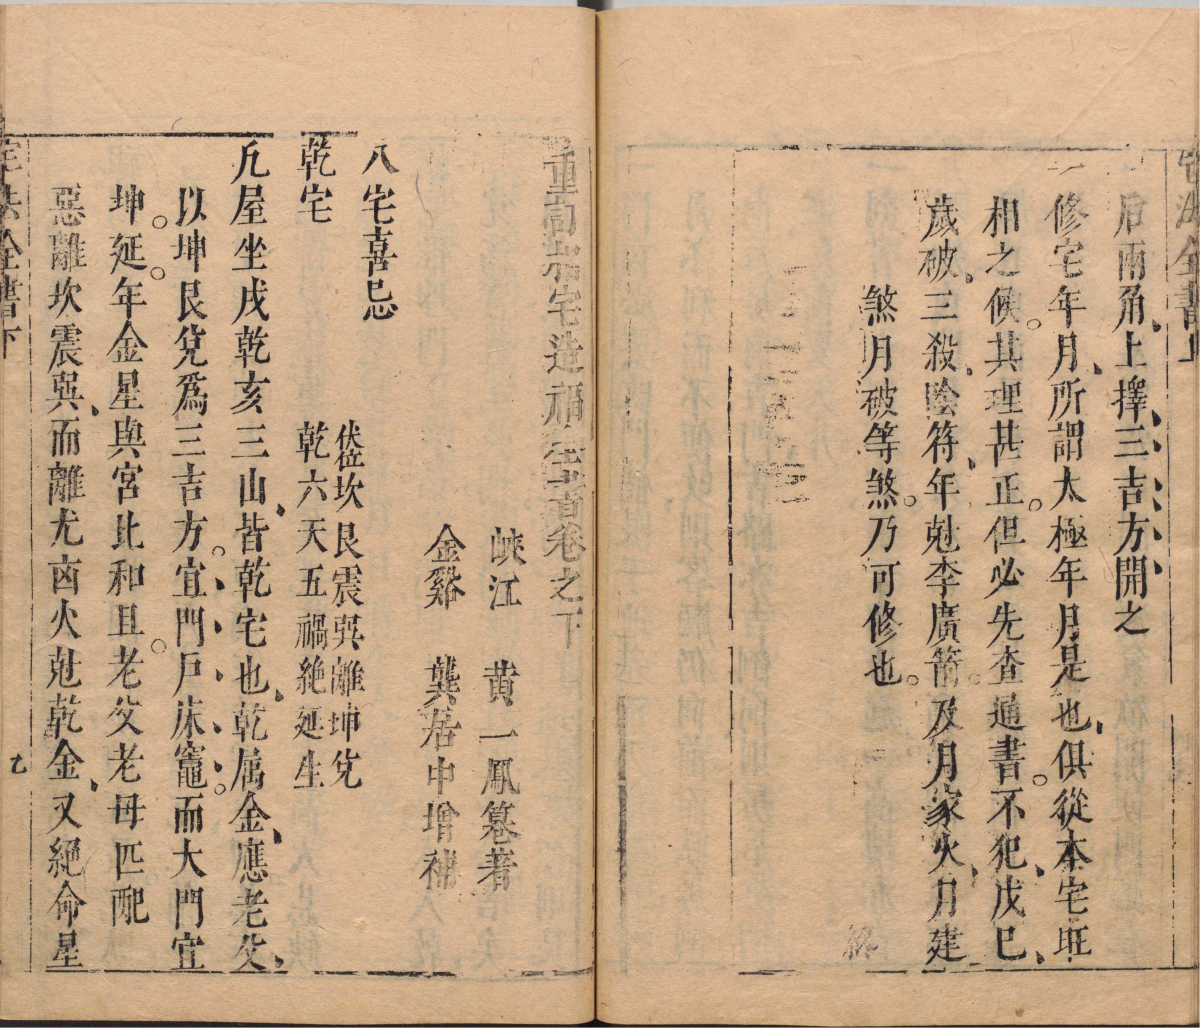 宅法全書上
后兩角上擇三吉方開之
一修宅年月所謂太極年月是也俱從本宅旺
相之候其理甚正但必先查通書不犯戊巳
歲破三殺陰符年尅李廣箭及月家火月建
煞月破等煞乃可修也
終
宅造福全書卷之下
峽江 黄一鳳纂著
金谿 龔居中增補
八宅喜忌
伏位坎艮震巽離坤兌
乾宅 乾六天五禍絶延生
凢屋坐戌乾亥三山皆乾宅也乾属金應老父
以坤艮兌爲三吉方宜門戶床竈而大門宜
坤延年金星與宮比和且老父老母匹配
惡離坎震巽而離尤凶火尅乾金又絕命星
宅法全書下
七